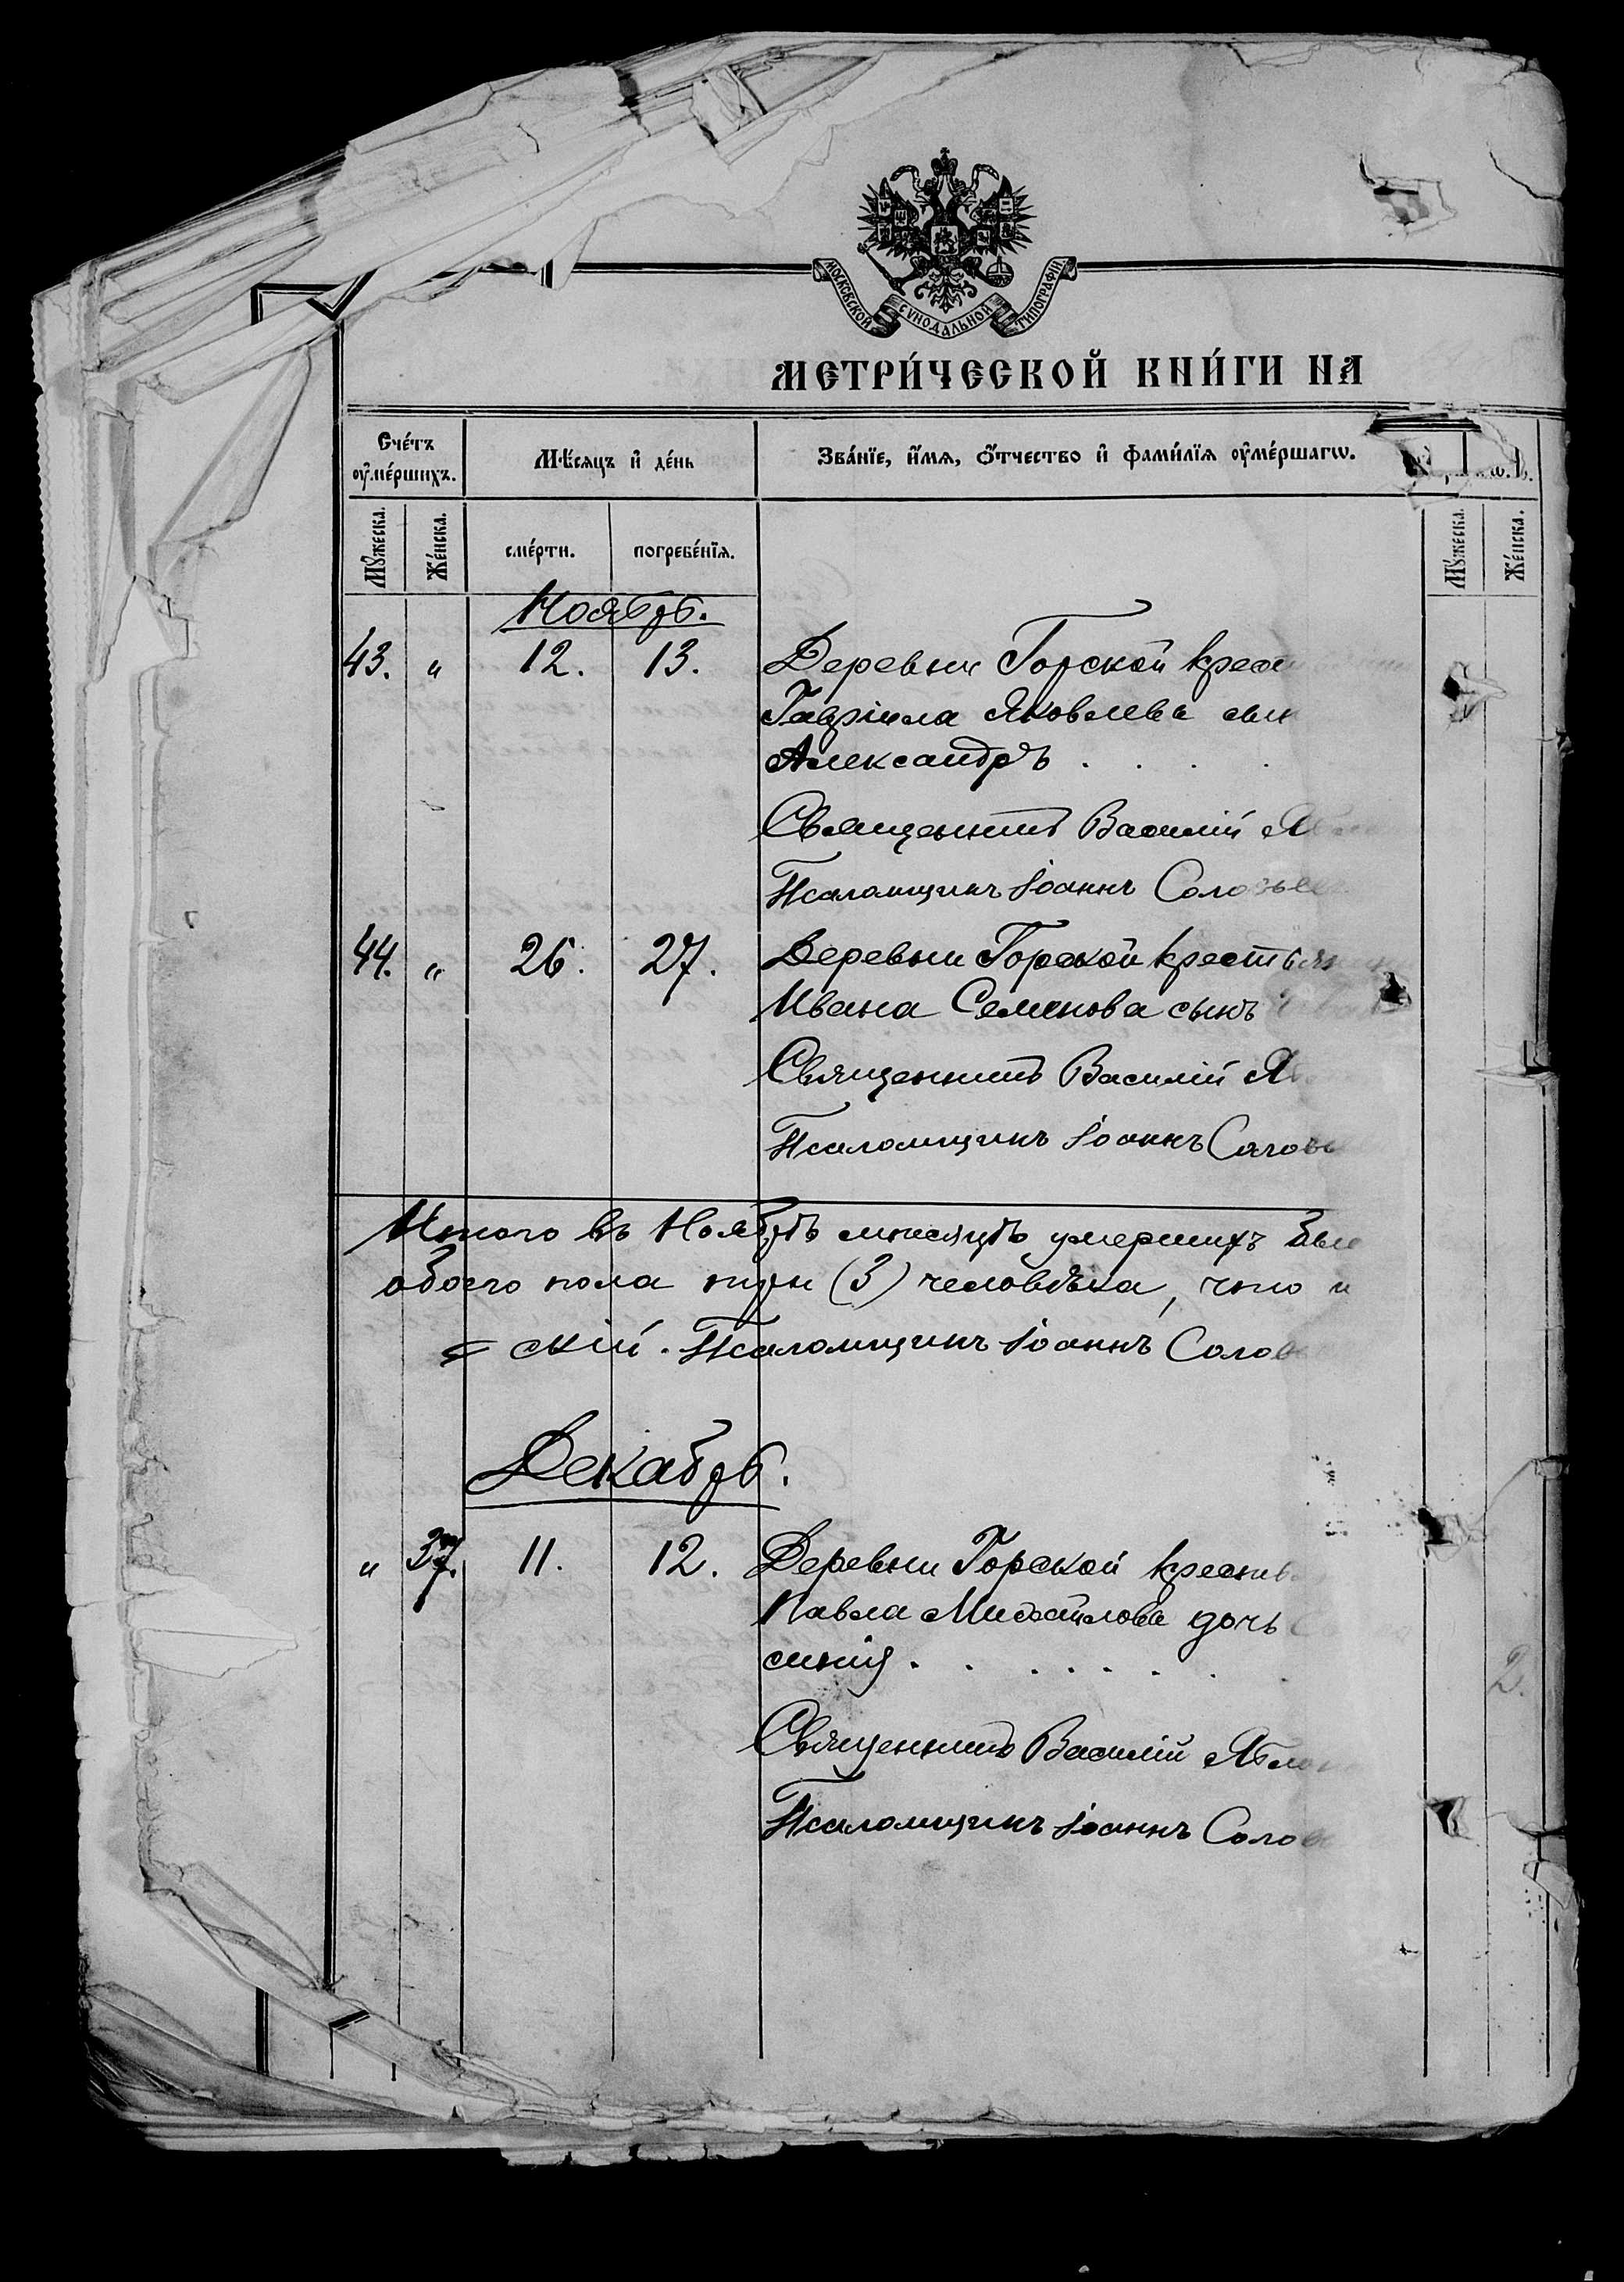 МОСКОВСКОЙ СѴНОДАЛЬНОЙ ТИПОГРАФІИ
МЕТРИ́ЧЕСКОЙ КНИ́ГИ НА
Сче́тъ оу҆ме́ршихъ.
Мѣ́сяцъ и҆ де́нь
Зва́нїе, и҆́мя, ѻ҆́тчество и҆ фами́лїя оу҆ме́ршагѡ.
Мꙋ́жеска.
Же́нска.
сме́рти.
погребе́нїя.
Мꙋ́жеска.
Же́нска.
Ноябрь.
43. „ 12. 13. Деревни Горской крест
Гавріила Яковлева сын
Александръ . . . .
Священникъ Василій Я
Псаломщикъ Іоаннъ Соловьев
44. „ 26. 27. Деревни Горской крестьян
Ивана Семенова сынъ
Священникъ Василій Я
Псаломщикъ Іоаннъ Соловь
Итого въ Ноябрѣ мѣсяцѣ умершихъ было
обоего пола три (3) человѣка, что и
скій. Псаломщикъ Іоаннъ Солов
Декабрь.
„ 37. 11. 12. Деревни Горской крестья
Павла Михайлова дочь
синія . . . . . . .
Священникъ Василій Ябло
Псаломщикъ Іоаннъ Солов
2.